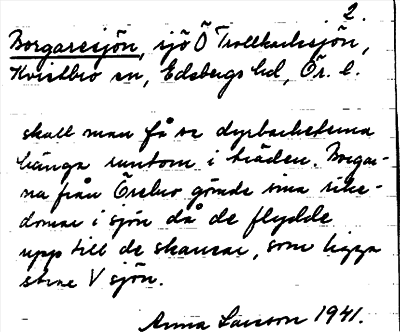 2.
Borgaresjön, sjö Ö Trollkarlssjön,
Kvistbro sn, Edsbergs hd, Ör. l.
skall man få se dyrbarheterna
hänga runtom i träden. Borgar-
na från Örebro gömde sina rike-
domar i sjön då de flydde
upp till de skansar, som ligga
strax V sjön.
Anna Larsson 1941.